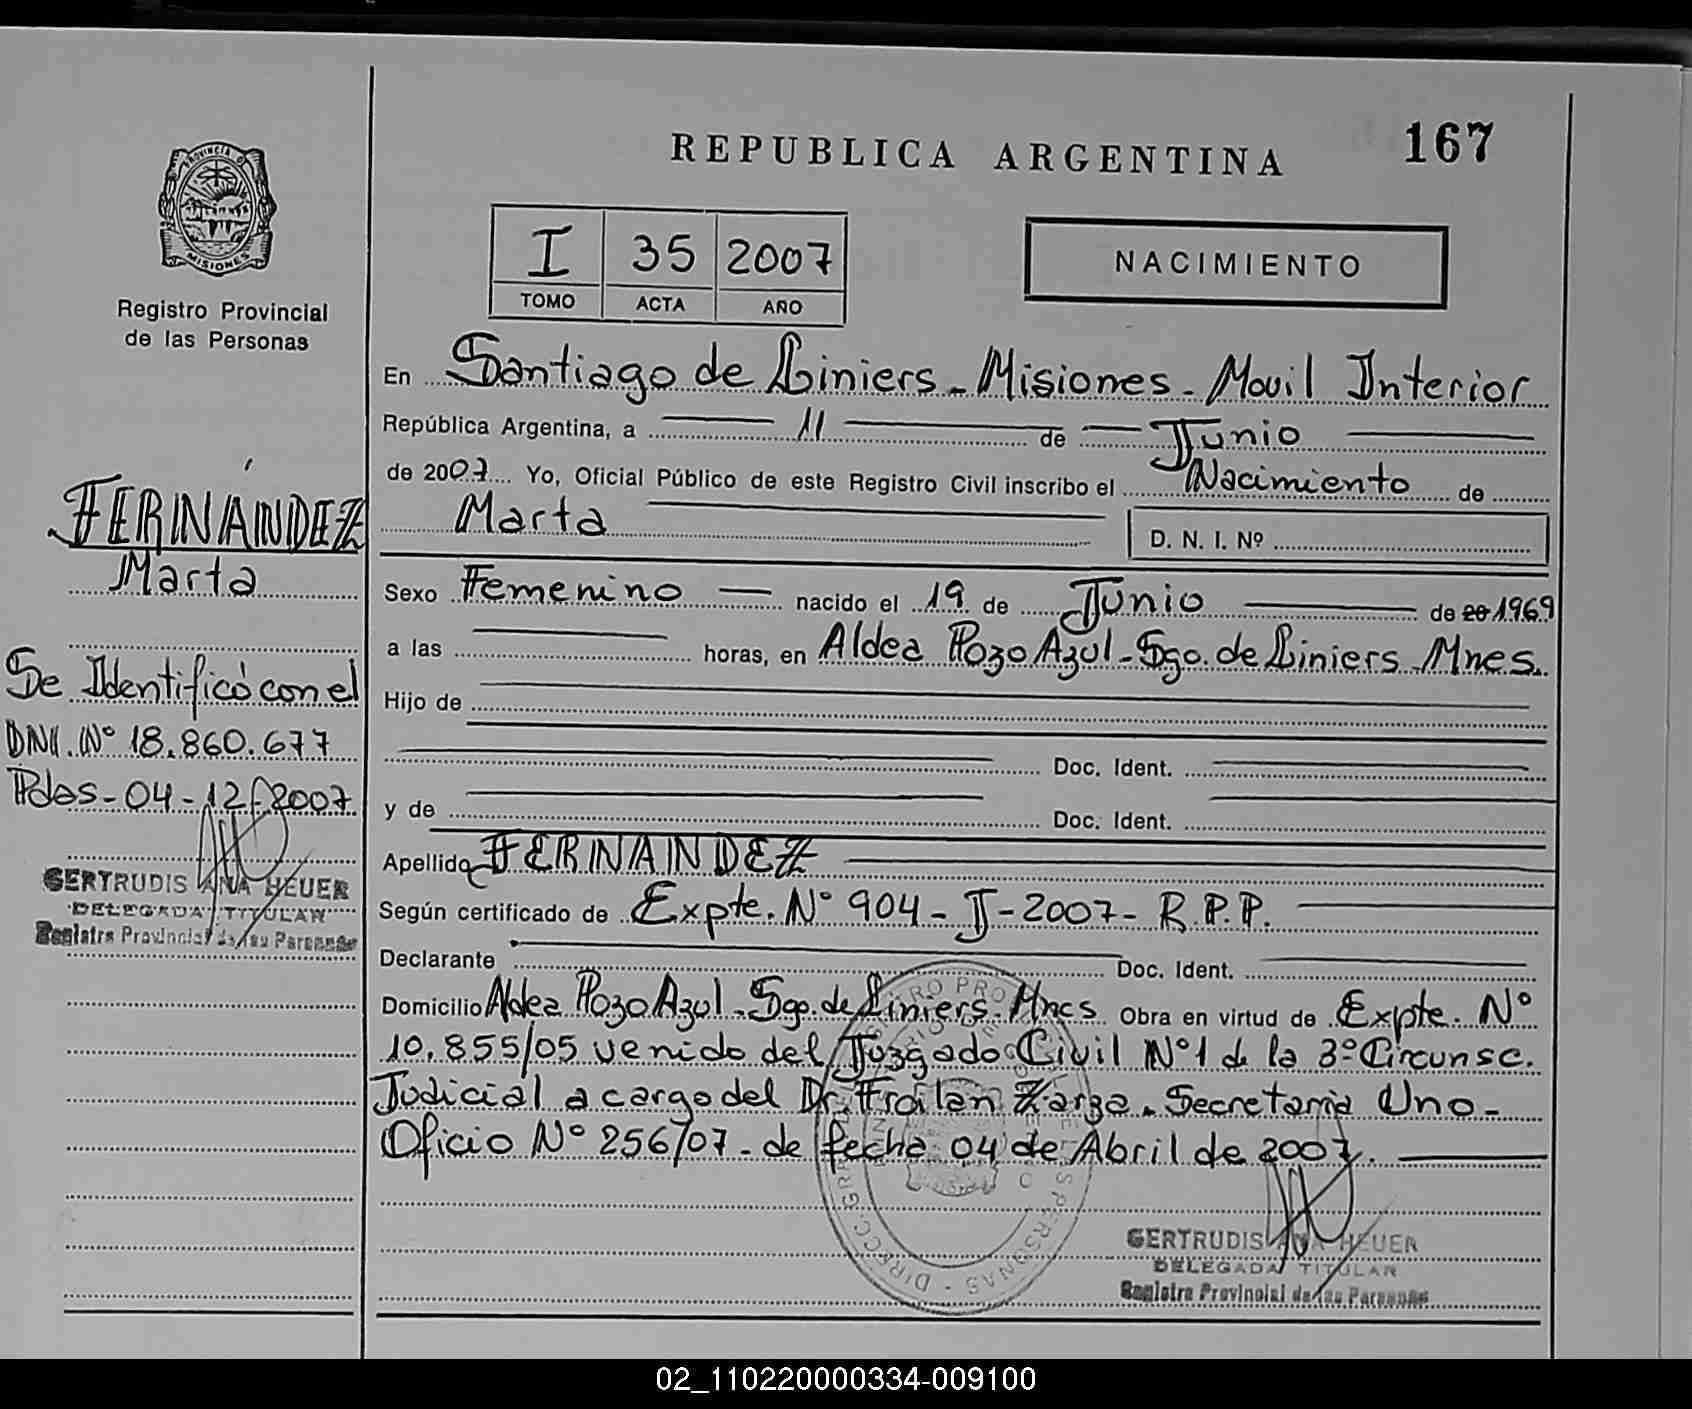 REPUBLICA ARGENTINA
167
PROVINCIA D
MISIONES
Registro Provincial
de las Personas
I 35 2007
TOMO ACTA AÑO
NACIMIENTO
En Santiago de Liniers - Misiones - Movil Interior
República Argentina, a 11 de Junio
de 2007 Yo, Oficial Público de este Registro Civil inscribo el Nacimiento de
Marta D. N. I. Nº
Sexo Femenino nacido el 19 de Junio de 20 1969
a las horas, en Aldea Pozo Azul - Sgo. de Liniers - Mnes.
Hijo de
Doc. Ident.
y de Doc. Ident.
Apellido FERNANDEZ
Según certificado de Expte. Nº 904 - J - 2007 - R.P.P.
Declarante Doc. Ident.
Domicilio Aldea Pozo Azul - Sgo. de Liniers - Mnes Obra en virtud de Expte. Nº
10.855/05 venido del Juzgado Civil Nº 1 de la 3º Circunsc.
Judicial a cargo del Dr. Froilan Zarza. Secretaria Uno -
Oficio Nº 256/07 - de fecha 04 de Abril de 2007.
GERTRUDIS ANA HEUER
DELEGADA TITULAR
Registro Provincial de las Personas
FERNÁNDEZ
Marta
Se Identificó con el
DNI. Nº 18.860.677
Pdas - 04 - 12 - 2007
GERTRUDIS ANA HEUER
DELEGADA TITULAR
Registro Provincial de las Personas
02_110220000334-009100